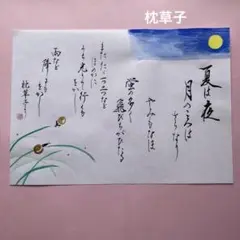 枕草子
夏は夜
月のころは
さらなり
やみもなほ
蛍の多く
飛びちがひたる
また ただ一つ二つなど
ほのかに
うち光りて行くも
をかし
雨など
降るも
をかし
枕草子